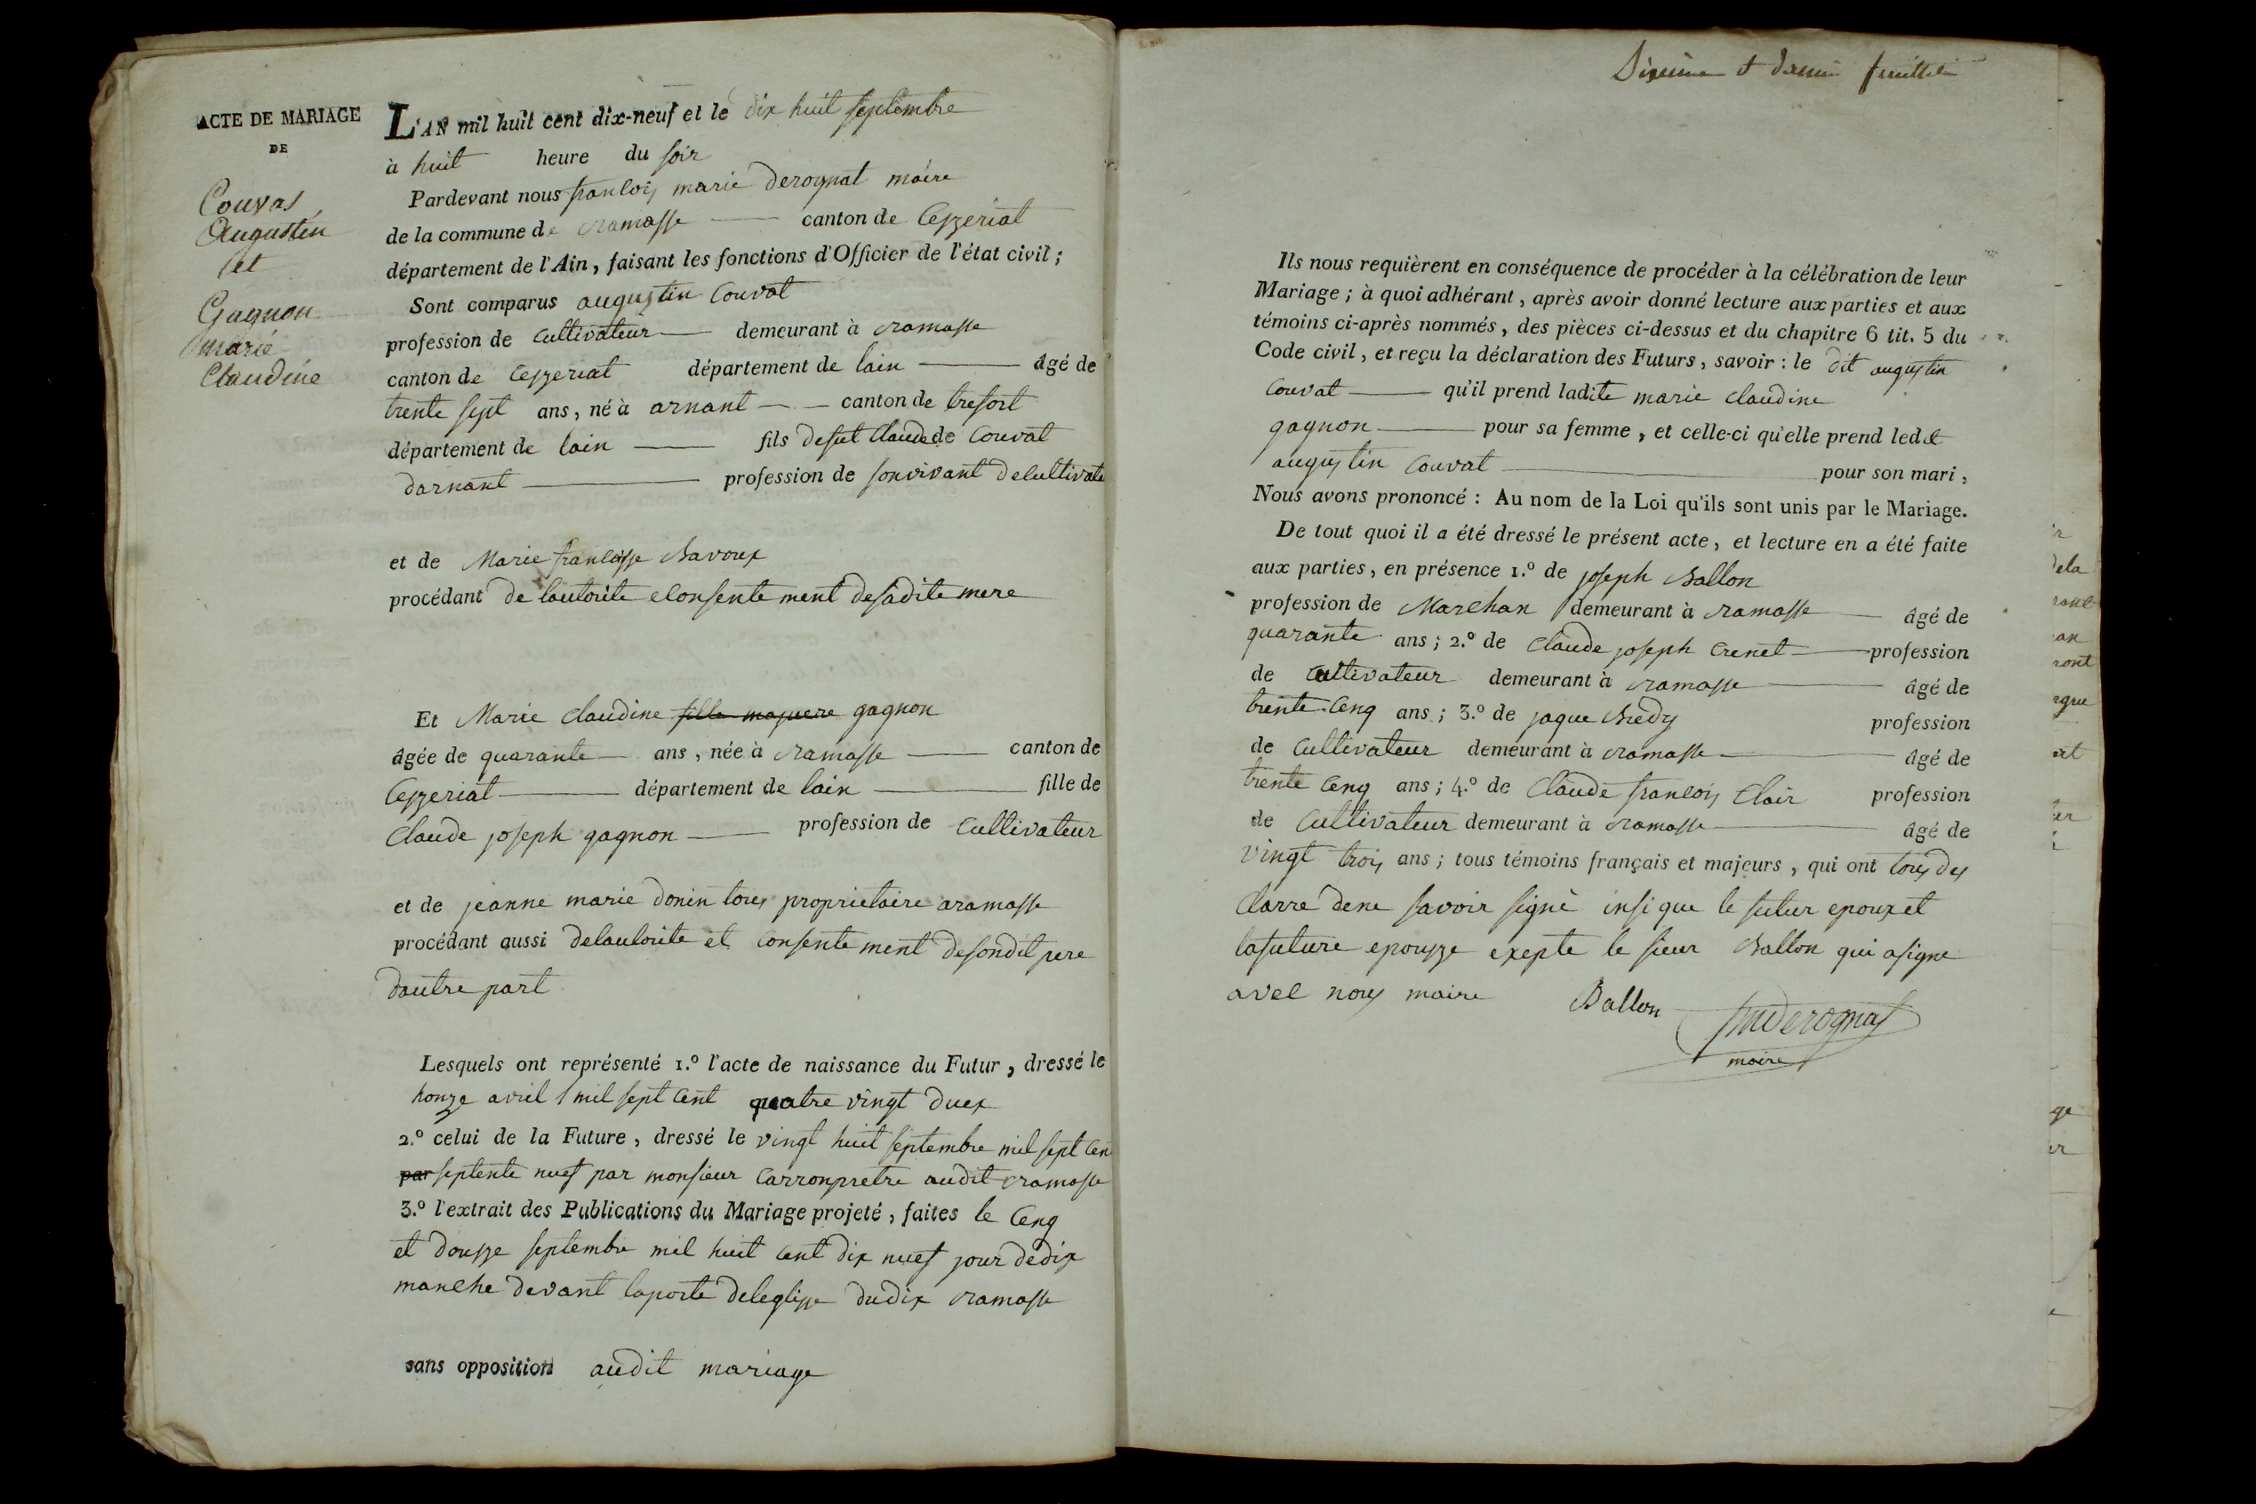 ACTE DE MARIAGE
DE
Couvas
Augustin
et
Gagnon
marie
Claudine
L'AN mil huit cent dix-neuf et le dix huit septembre
à huit heure du soir
Pardevant nous francois marie derognat maire
de la commune de ramasse canton de Ceyzeriat
département de l'Ain, faisant les fonctions d'Officier de l'état civil;
Sont comparus augustin Couvat
profession de cultivateur demeurant à ramasse
canton de Ceyzeriat département de lain âgé de
trente sept ans, né à arnant canton de tresort
département de lain fils defut Claude de Couvat
darnant profession de sonvivant decultivate
et de Marie francoisse Bavoux
procédant de lautorite econsentement desadite mere
Et Marie Claudine fille majuere gagnon
âgée de quarante ans, née à ramasse canton de
Ceyzeriat département de lain fille de
Claude joseph gagnon profession de Cultivateur
et de jeanne marie donin tous proprietaire aramasse
procédant aussi delautorite et Consentement desondit pere
dautre part
Lesquels ont représenté 1.º l'acte de naissance du Futur, dressé le
honze avril mil sept cent quatre vingt duex
2.º celui de la Future, dressé le vingt huit septembre mil sept cen
par septente nuef par monsieur Carronpretre audit ramasse
3.º l'extrait des Publications du Mariage projeté, faites le Cenq
et dousze septembre mil huit cent dix nuef jour dedix
manche devant laporte deleglisse dudix ramasse
sans opposition audit mariage
Sixieme et dernier feuillet
Ils nous requièrent en conséquence de procéder à la célébration de leur
Mariage; à quoi adhérant, après avoir donné lecture aux parties et aux
témoins ci-après nommés, des pièces ci-dessus et du chapitre 6 tit. 5 du
Code civil, et reçu la déclaration des Futurs, savoir: le dit augustin
Couvat qu'il prend ladite marie claudine
gagnon pour sa femme, et celle-ci qu'elle prend ledit
augustin Couvat pour son mari,
Nous avons prononcé: Au nom de la Loi qu'ils sont unis par le Mariage.
De tout quoi il a été dressé le présent acte, et lecture en a été faite
aux parties, en présence 1.º de joseph Ballon
profession de Marchan demeurant à ramasse âgé de
quarante ans; 2.º de Claude joseph Crenet profession
de Cultivateur demeurant à ramasse âgé de
trente Cenq ans; 3.º de jaque Bredy profession
de Cultivateur demeurant à ramasse âgé de
trente Cenq ans; 4.º de Claude francois Clair profession
de Cultivateur demeurant à ramasse âgé de
vingt trois ans; tous témoins français et majeurs, qui ont tous des
clarre dene savoir signé insi que le futur epoux et
lafuture epousze exepte le sieur Ballon qui asigne
avec nous maire Ballon
fmderognat
maire